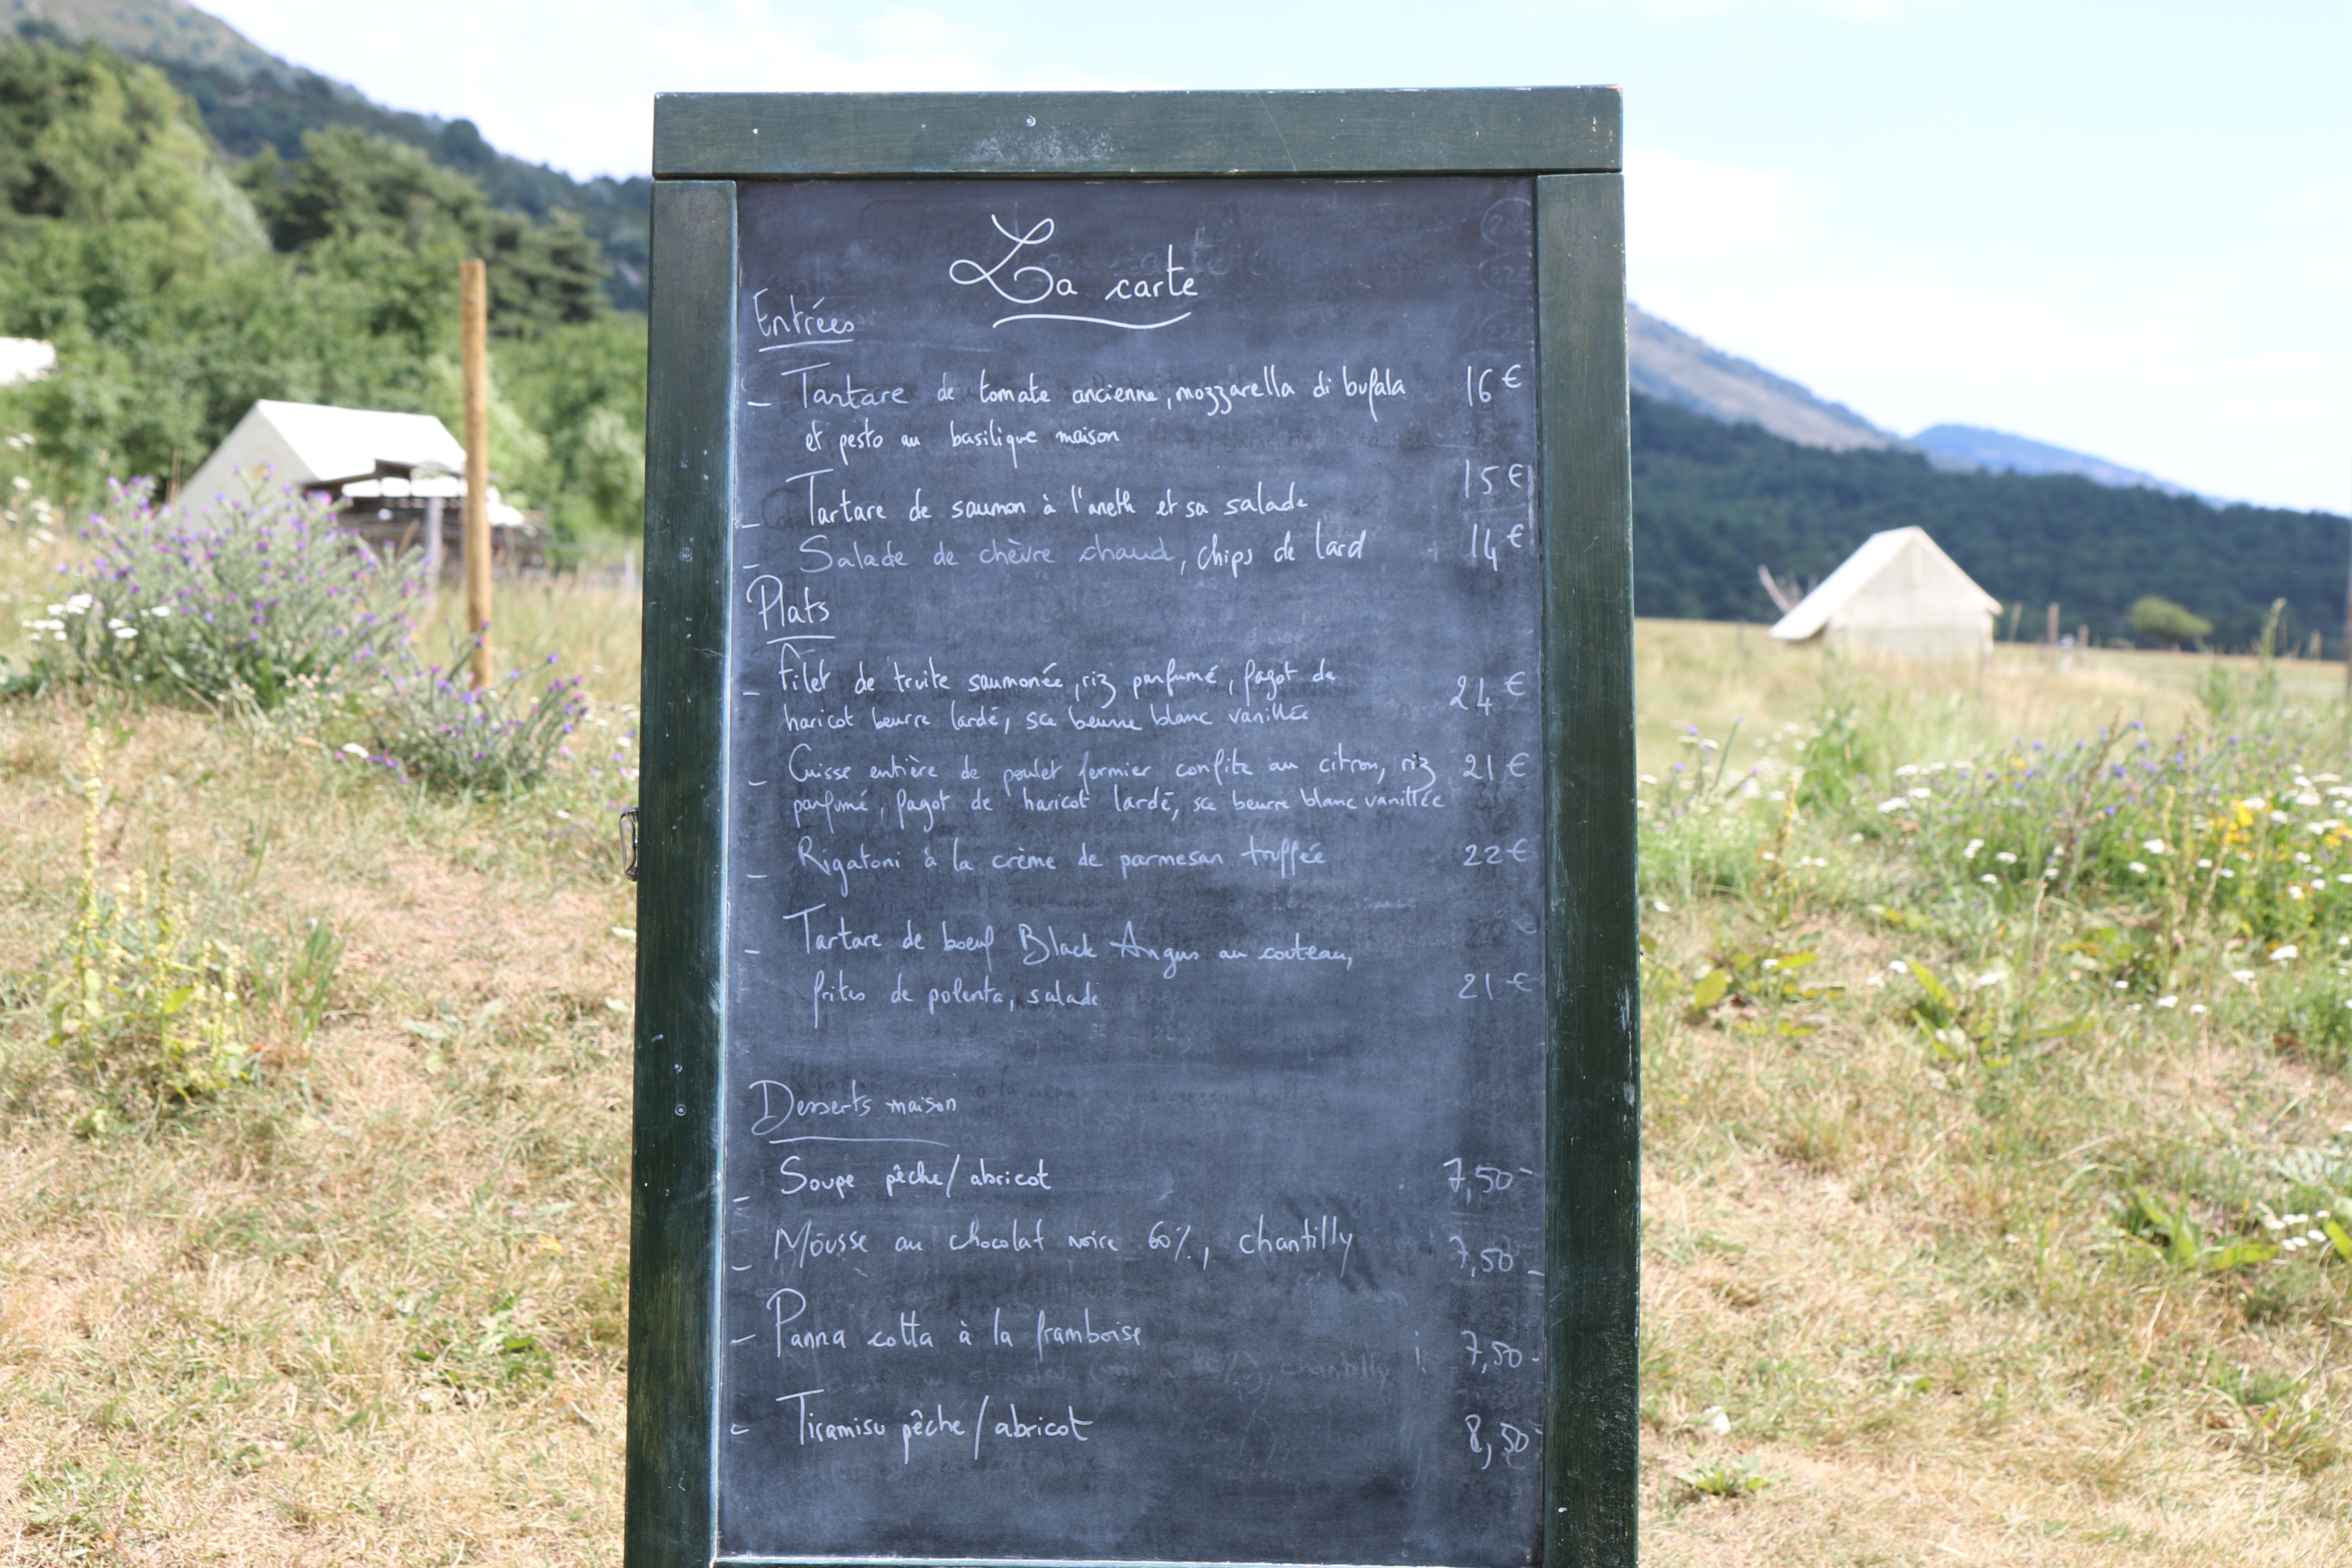 La carte
Entrées
- Tartare de tomate ancienne, mozzarella di bufala 16€
et pesto au basilique maison
- Tartare de saumon à l'aneth et sa salade 15€
- Salade de chèvre chaud, chips de lard 14€
Plats
- Filet de truite saumonée, riz parfumé, fagot de
haricot beurre lardé, sce beurre blanc vanillée 24€
- Cuisse entière de poulet fermier confite au citron, riz 21€
parfumé, fagot de haricot lardé, sce beurre blanc vanillée
- Rigatoni à la crème de parmesan truffée 22€
- Tartare de boeuf Black Angus au couteau,
frites de polenta, salade 21€
Desserts maison
- Soupe pêche/abricot 7,50
- Mousse au chocolat noire 60%, chantilly 7,50
- Panna cotta à la framboise 7,50
- Tiramisu pêche/abricot 8,50